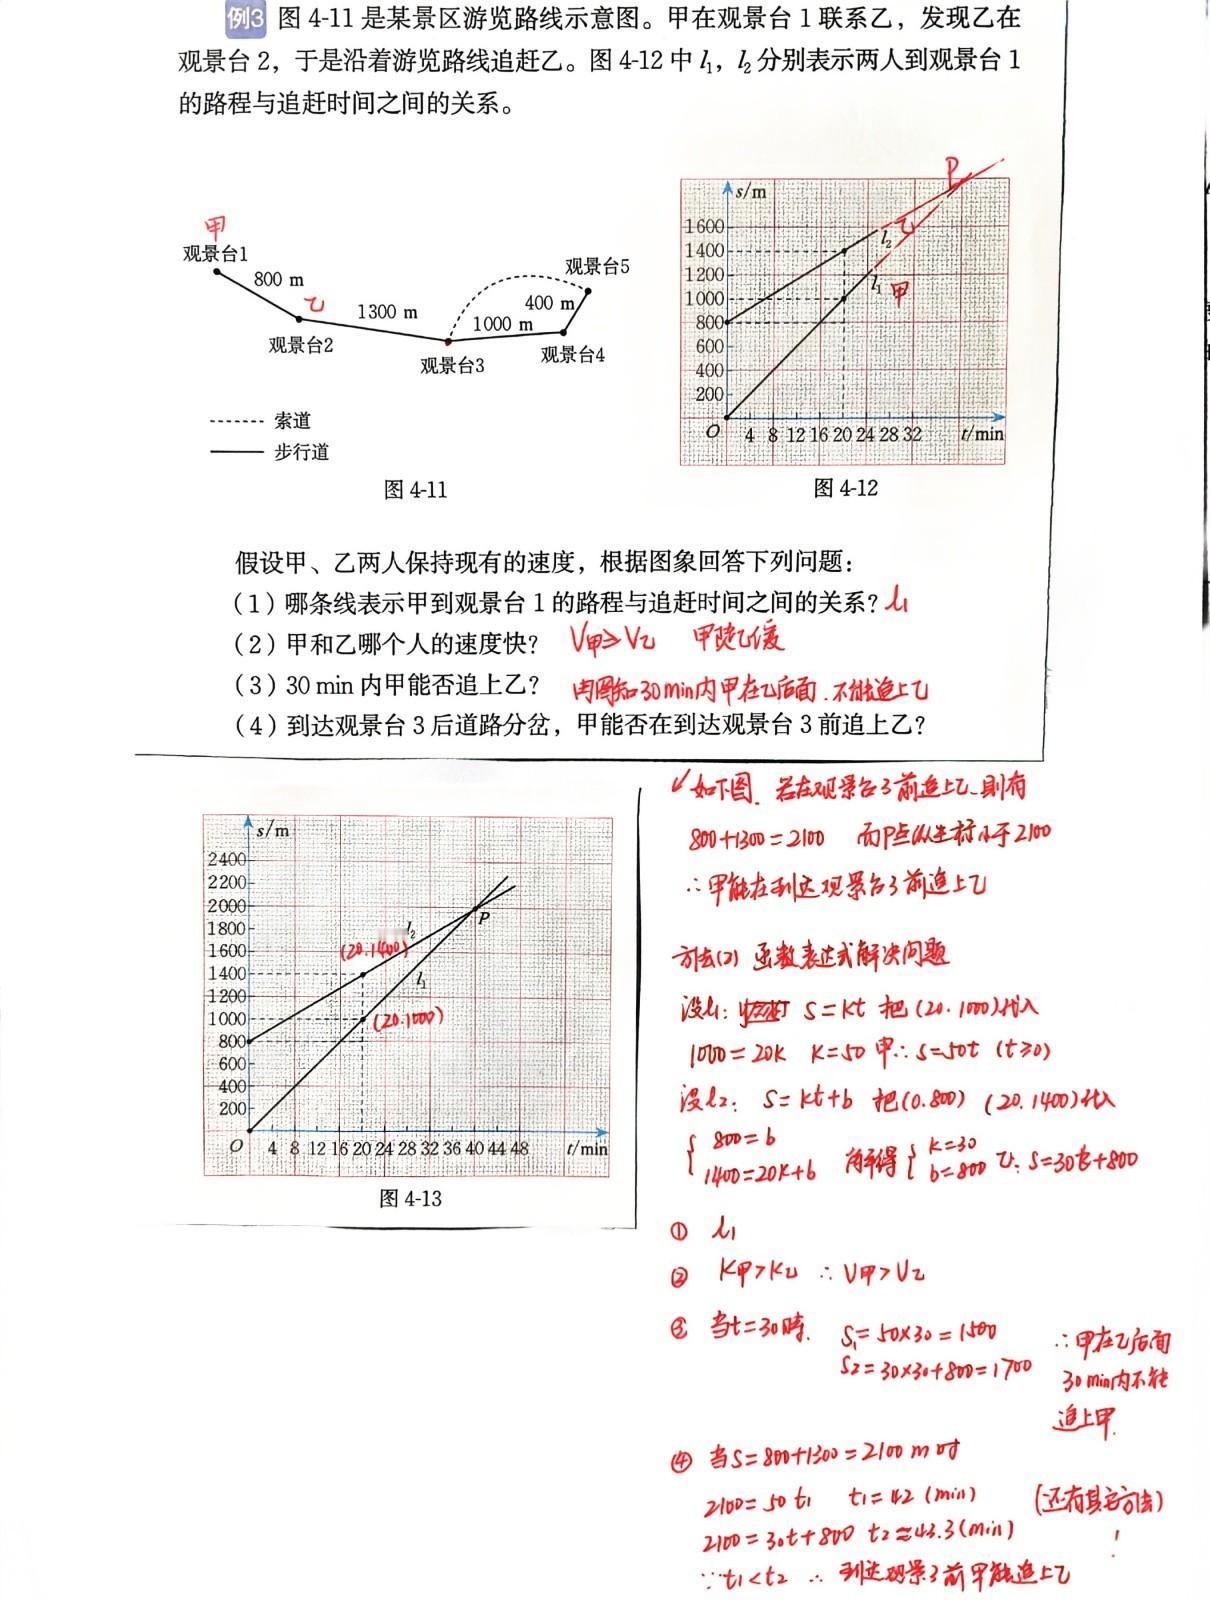 例3 图 4-11 是某景区游览路线示意图。甲在观景台 1 联系乙，发现乙在
观景台 2，于是沿着游览路线追赶乙。图 4-12 中 l₁，l₂ 分别表示两人到观景台 1
的路程与追赶时间之间的关系。
甲
观景台1
800 m
乙
观景台2
1300 m
观景台3
1000 m
400 m
观景台5
观景台4
索道
步行道
图 4-11
s/m
P
1600
1400
1200
1000
800
600
400
200
l₂ 乙
l₁ 甲
O 4 8 12 16 20 24 28 32 t/min
图 4-12
假设甲、乙两人保持现有的速度，根据图象回答下列问题：
（1）哪条线表示甲到观景台 1 的路程与追赶时间之间的关系？ l₁
（2）甲和乙哪个人的速度快？ V甲>V乙 甲快乙慢
（3）30 min 内甲能否追上乙？ 由图知30min内甲在乙后面.不能追上乙
（4）到达观景台 3 后道路分岔，甲能否在到达观景台 3 前追上乙？
s/m
2400
2200
2000
1800
1600
1400
1200
1000
800
600
400
200
l₂
(20.1400)
P
l₁
(20.1000)
O 4 8 12 16 20 24 28 32 36 40 44 48 t/min
图 4-13
如下图. 若在观景台3前追上乙.则有
800+1300=2100 而P点纵坐标小于2100
∴甲能在到达观景台3前追上乙
方法(2) 函数表达式解决问题
设l₁: S=kt 把(20.1000)代入
1000=20k K=50 甲∴S=50t (t≥0)
设l₂: S=kt+b 把(0.800) (20.1400)代入
{ 800=b
1400=20k+b 解得 { k=30
b=800 乙: S=30t+800
① l₁
② K甲>K乙 ∴V甲>V乙
③ 当t=30时. S₁=50×30=1500
S₂=30×30+800=1700
∴甲在乙后面
30min内不能
追上甲.
④ 当S=800+1300=2100 m 时
2100=50t₁ t₁=42 (min)
2100=30t+800 t₂≈43.3(min)
(还有其它方法)!
∵t₁<t₂ ∴ 到达观景3前甲能追上乙